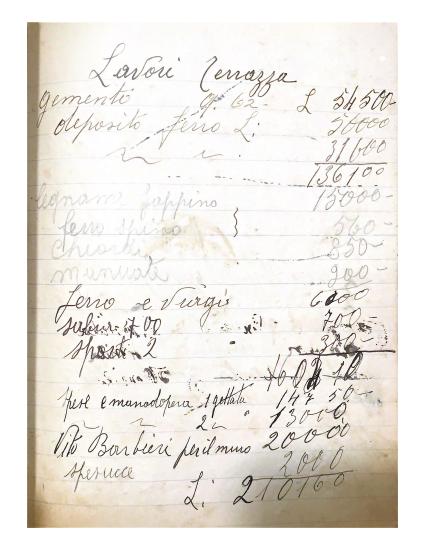 Lavori Terrazza
gemento q. 62- L 54500-
deposito ferro L: 50000
31600
136100
legname Zappino 15000-
ferro spinao 560-
chiodi 850-
manuale 900-
Ferro e Virgi 6200
700-
sposti 2 300-
160210
spese e manodopera 1 gettata 14750-
" 2 " 13000
Vito Barbieri per il muro 20000
sperucce 2000
L: 210160